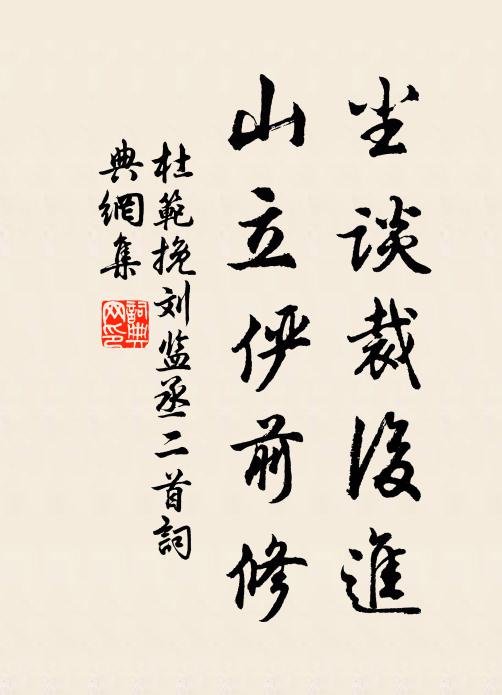 尘谈裁後進
山立俨前修
杜範挽刘监丞二首詞
典網集
詞典网印